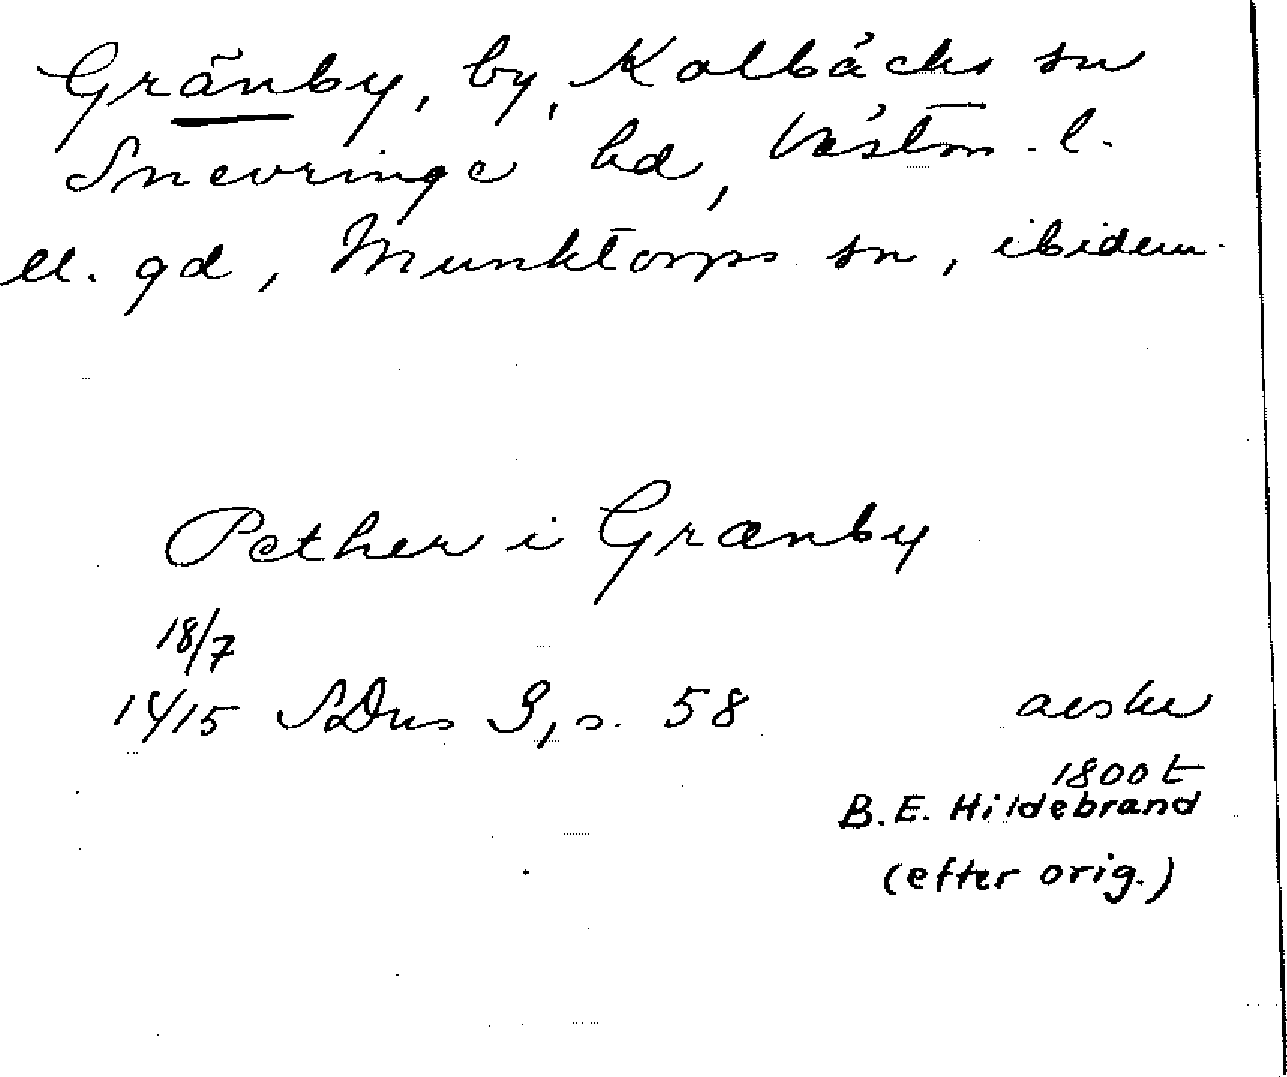 Gränby, by, Kolbäcks sn
Snevringe hd, Västm. l.
el. gd, Munktorps sn, ibidem.
Pether i Grænby
18/7
1415 SDns 3, s. 58
avskr
1800 t
B. E. Hildebrand
(efter orig.)